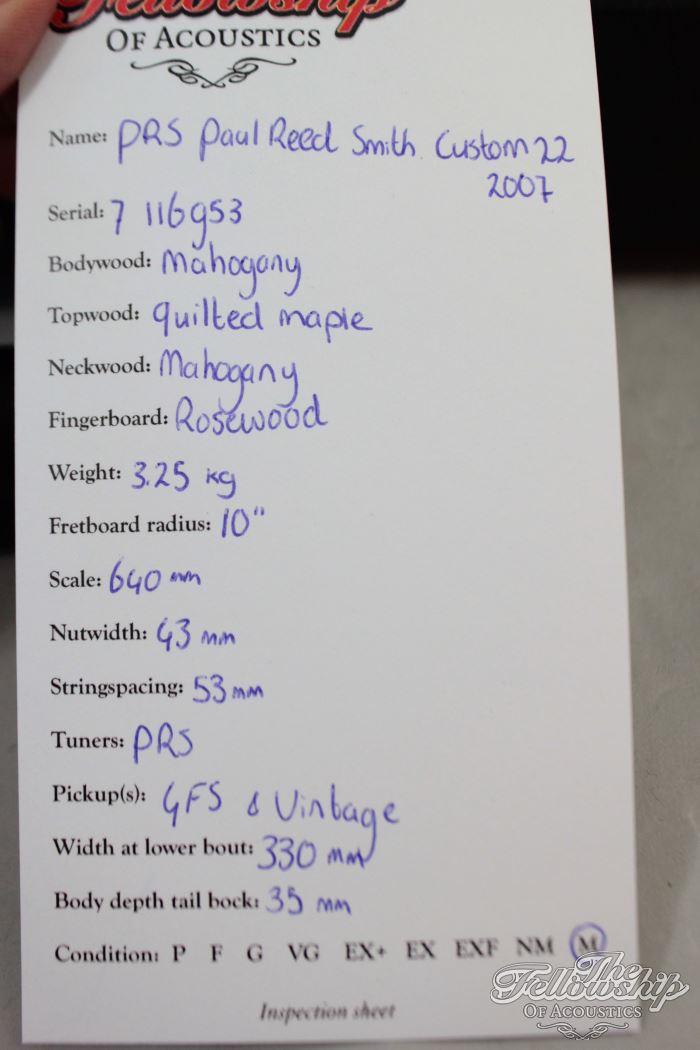 Fellowship
OF ACOUSTICS
Name: PRS Paul Reed Smith Custom 22
2007
Serial: 7 116953
Bodywood: Mahogany
Topwood: quilted maple
Neckwood: Mahogany
Fingerboard: Rosewood
Weight: 3.25 kg
Fretboard radius: 10"
Scale: 640 mm
Nutwidth: 43 mm
Stringspacing: 53 mm
Tuners: PRS
Pickup(s): GFS & Vintage
Width at lower bout: 330 mm
Body depth tail bock: 35 mm
Condition: P F G VG EX+ EX EXF NM M
Inspection sheet
The
Fellowship
OF ACOUSTICS